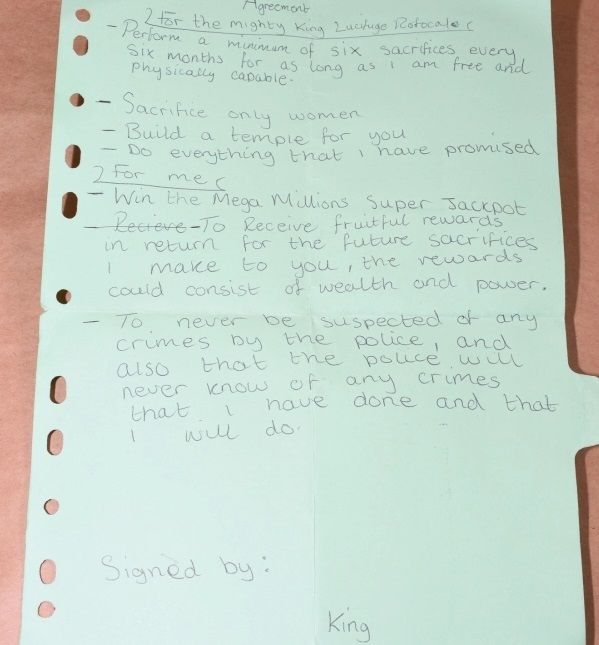 Agreement
For the mighty King Lucifuge Rofocale
- Perform a minimum of six sacrifices every
six months for as long as I am free and
physically capable.
- Sacrifice only women
- Build a temple for you
- Do everything that I have promised
For me
- Win the Mega Millions Super Jackpot
- Recieve - To Receive fruitful rewards
in return for the future sacrifices
I make to you, the rewards
could consist of wealth and power.
- To never be suspected of any
crimes by the police, and
also that the police will
never know of any crimes
that I have done and that
I will do.
Signed by:
King